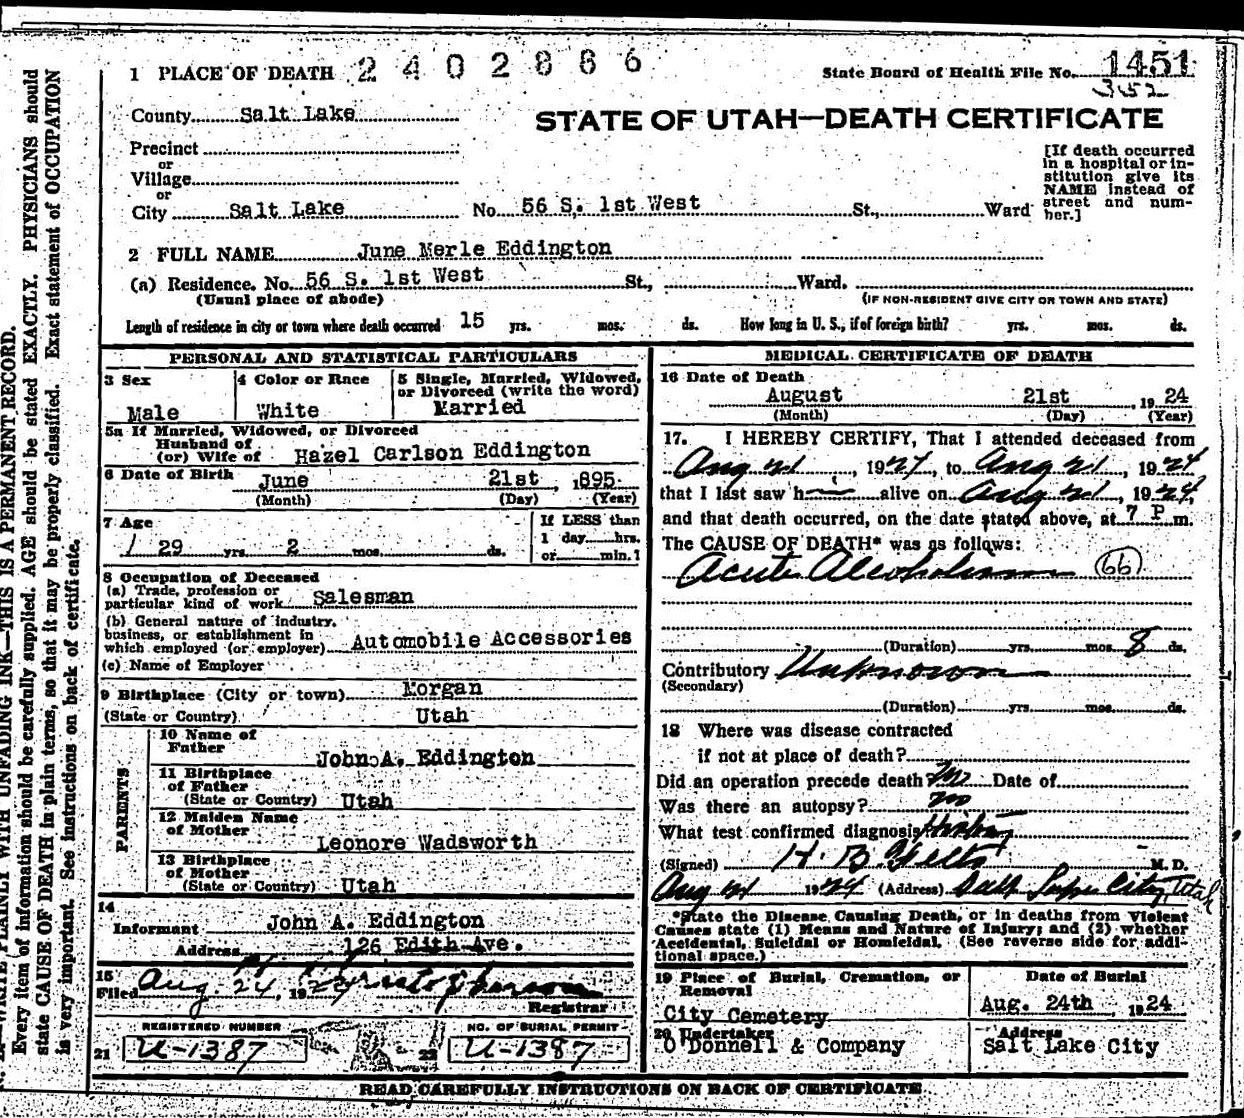 1 PLACE OF DEATH 2402866
State Board of Health File No. 1451
352
County Salt Lake
STATE OF UTAH—DEATH CERTIFICATE
Precinct
or
Village
or
City Salt Lake No. 56 S. 1st West St., Ward
[If death occurred
in a hospital or in-
stitution give its
NAME instead of
street and num-
ber.]
2 FULL NAME June Merle Eddington
(a) Residence. No. 56 S. 1st West St., Ward.
(Usual place of abode) (IF NON-RESIDENT GIVE CITY OR TOWN AND STATE)
Length of residence in city or town where death occurred 15 yrs. mos. ds. How long in U. S., if of foreign birth? yrs. mos. ds.
PERSONAL AND STATISTICAL PARTICULARS
3 Sex
Male
4 Color or Race
White
5 Single, Married, Widowed,
or Divorced (write the word)
Married
5a If Married, Widowed, or Divorced
Husband of
(or) Wife of Hazel Carlson Eddington
6 Date of Birth June 21st, 1895
(Month) (Day) (Year)
7 Age
29 yrs. 2 mos. ds.
If LESS than
1 day hrs.
or min.?
8 Occupation of Deceased
(a) Trade, profession or
particular kind of work Salesman
(b) General nature of industry,
business, or establishment in
which employed (or employer) Automobile Accessories
(c) Name of Employer
9 Birthplace (City or town) Morgan
(State or Country) Utah
PARENTS
10 Name of
Father John A. Eddington
11 Birthplace
of Father
(State or Country) Utah
12 Maiden Name
of Mother Leonore Wadsworth
13 Birthplace
of Mother
(State or Country) Utah
14
Informant John A. Eddington
Address 126 Edith Ave.
15
Filed Aug. 24, 1924
Registrar
REGISTERED NUMBER
21 U-1387
NO. OF BURIAL PERMIT
22 U-1387
MEDICAL CERTIFICATE OF DEATH
16 Date of Death
August 21st, 1924
(Month) (Day) (Year)
17. I HEREBY CERTIFY, That I attended deceased from
Aug 21, 1924, to Aug 21, 1924
that I last saw h alive on Aug 21, 1924,
and that death occurred, on the date stated above, at 7 P. m.
The CAUSE OF DEATH* was as follows:
Acute Alcoholism (66)
(Duration) yrs. mos. 8 ds.
Contributory Unknown
(Secondary)
(Duration) yrs. mos. ds.
18 Where was disease contracted
if not at place of death?
Did an operation precede death? No Date of
Was there an autopsy? no
What test confirmed diagnosis?
(Signed) H. B. M.D.
Aug 21 1924 (Address) Salt Lake City, Utah
*State the Disease Causing Death, or in deaths from Violent
Causes state (1) Means and Nature of Injury; and (2) whether
Accidental, Suicidal or Homicidal. (See reverse side for addi-
tional space.)
19 Place of Burial, Cremation, or
Removal
City Cemetery
Date of Burial
Aug. 24th, 1924
20 Undertaker
O'Donnell & Company
Address
Salt Lake City
READ CAREFULLY INSTRUCTIONS ON BACK OF CERTIFICATE
WRITE PLAINLY WITH UNFADING INK—THIS IS A PERMANENT RECORD.
Every item of information should be carefully supplied. AGE should be stated EXACTLY. PHYSICIANS should
state CAUSE OF DEATH in plain terms, so that it may be properly classified. Exact statement of OCCUPATION
is very important. See instructions on back of certificate.